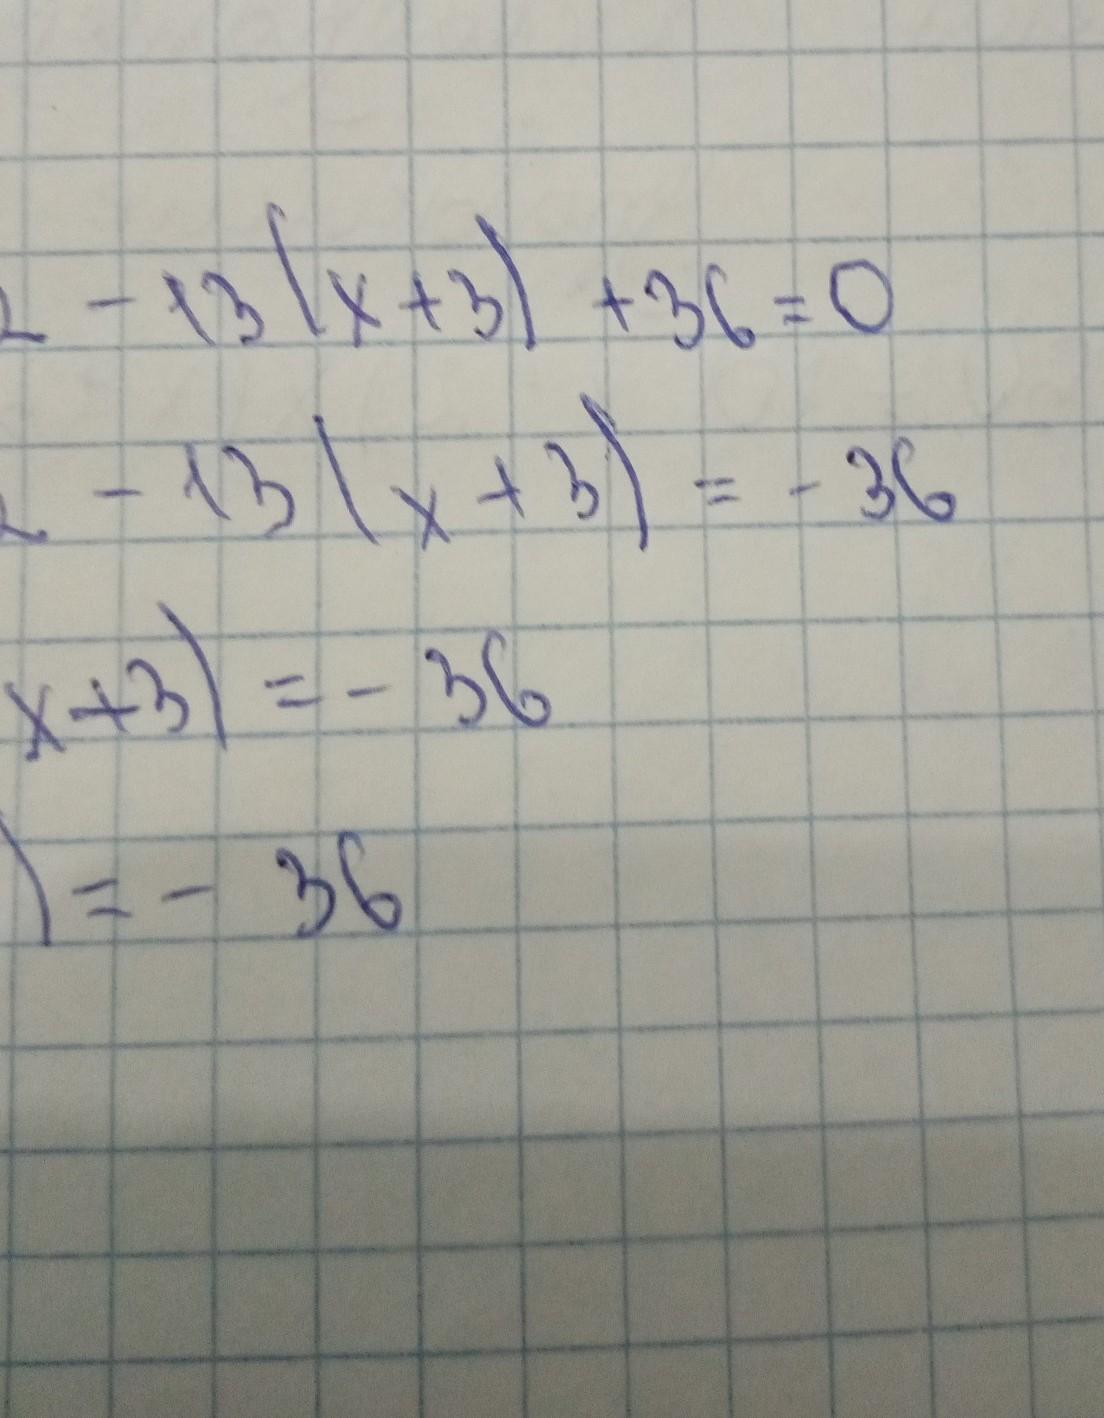 2 - 13(x+3) +36=0
2 - 13(x+3) = - 36
x+3) = - 36
) = - 36